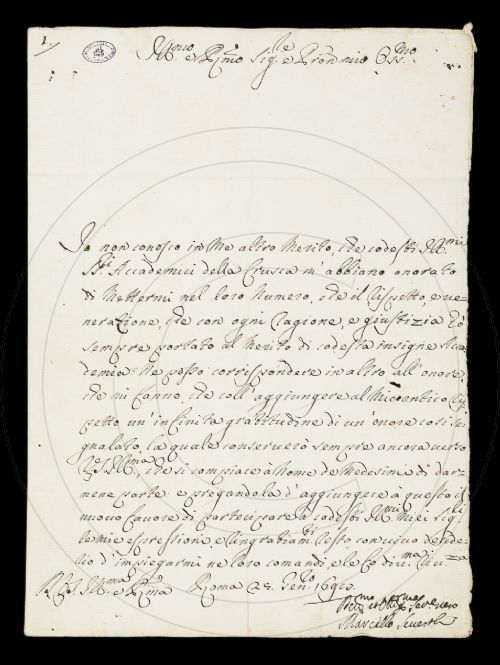 1.
Ill.mo e R.mo Sig.re e Pron mio Oss.mo
Io non conosco in Me altro Merito, che codesti Ill.mi
SS.ri Accademici della Crusca m'abbiano onorato
di Mettermi nel loro Numero, che il rispetto, e ve-
nerazione, che con ogni ragione, e giustizia hò
sempre portato al Merito di codesta insigne Acca-
demia. Ne posso corrispondere in altro all'onore,
che mi fanno, che coll'aggiungere al Mio antico ris-
petto un'infinita gratitudine di un'onore così se-
gnalato, la quale conserverò sempre ancora verso
VS. Ill.ma, che si compiace à Nome de Medesimi di dar-
mene parte e pregandola d'aggiungere à questo il
nuovo favore di partecipare à codesti Ill.mi miei Sig.ri
le mie espressioni e ringratiam.ti resto con vivo deside-
rio d'impiegarmi ne loro comandi, e le fo div.ma riv.za
Di VS. Ill.ma e R.ma Roma 28.
Marcello Severoli